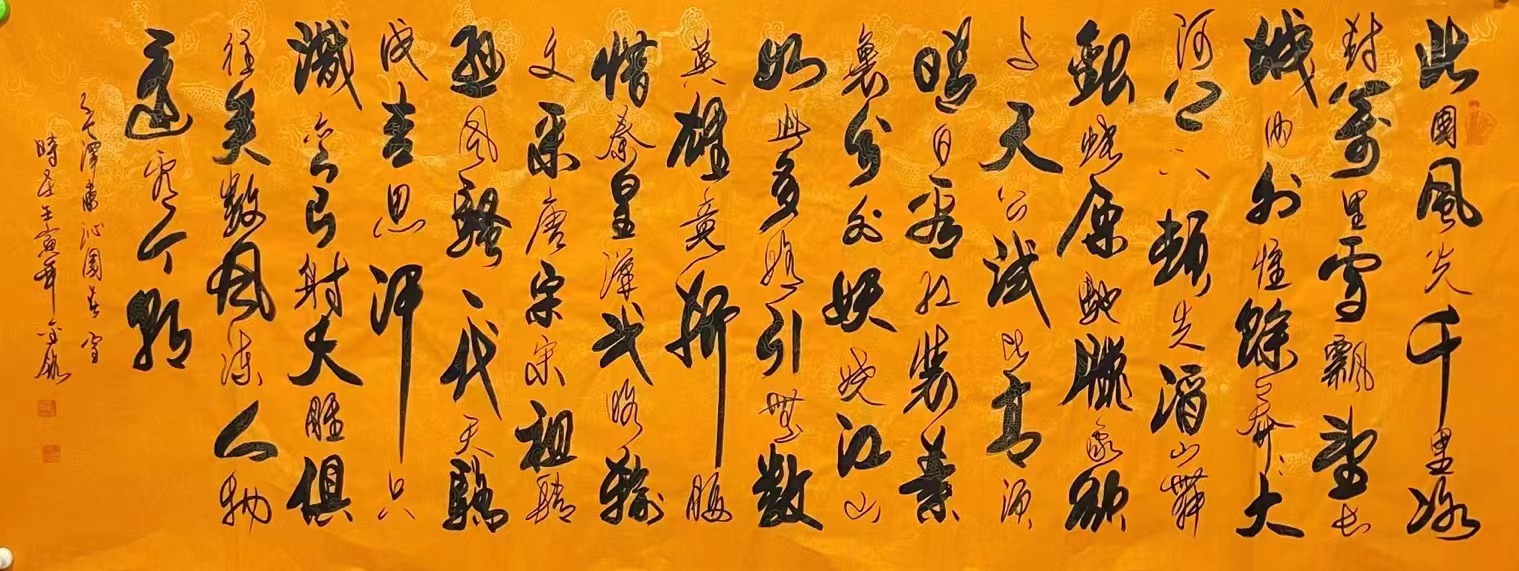 北國風光千里冰
封萬里雪飄望长
城内外惟餘莽莽大
河上下頓失滔山舞
銀蛇原馳臘象欲
与天公試比高須
晴日看红裝素
裹分外妖娆江山
如此多娇引無数
英雄竞折腰
惜秦皇漢武略輸
文采唐宗宋祖稍
逊风騷一代天驕
成吉思汗只
識弯弓射大雕俱
往矣数风流人物
还看今朝
毛澤東沁園春雪
時在壬寅年